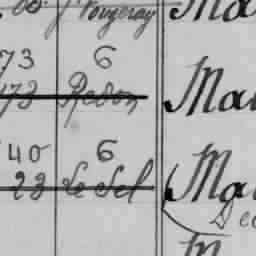 J. Fougeray Ma
73 6
173 Redon Mau
40 6
23 Le Sel Ma
De
M